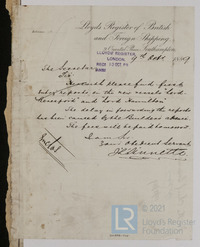 Lloyd's Register of British
and Foreign Shipping,
Southampton
LLOYDS REGISTER,
LONDON.
RECD 10 OCT 89
9th Oct 1889
The Secretary
Sir,
Herewith Please find first
entry reports on the new vessels Lord
and Lord Hamilton
The delay in forwarding the reports
has been caused by the Builders absence.
The fees will be paid tomorrow
I am Sir
Your Obedient Servant
© 2021
Lloyd's Register
Foundation